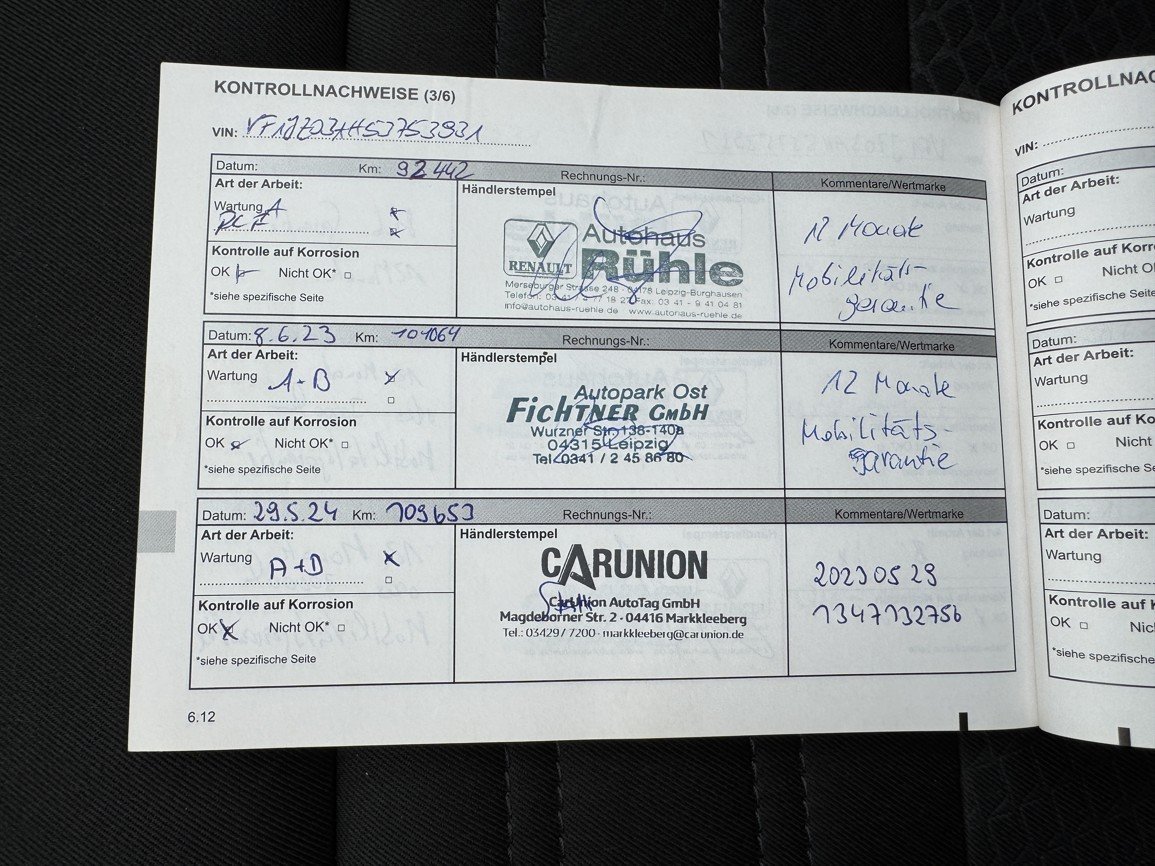 KONTROLLNACHWEISE (3/6)
VIN:
Datum: Km: 92442 Rechnungs-Nr.: Kommentare/Wertmarke
Art der Arbeit: Händlerstempel
Wartung A
12 Monate
Mobilitäts-
garantie
RENAULT
Autohaus
Rühle
Merseburger Strasse 248 - 04178 Leipzig-Burghausen
Telefon: 03 41 / 9 41 04 81
info@autohaus-ruehle.de www.autohaus-ruehle.de
Kontrolle auf Korrosion
OK Nicht OK*
*siehe spezifische Seite
Datum: 8.6.23 Km: 101064 Rechnungs-Nr.: Kommentare/Wertmarke
Art der Arbeit: Händlerstempel
Wartung A+B
12 Monate
Mobilitäts-
garantie
Autopark Ost
FICHTNER GMBH
Wurzner Str. 138-140a
04315 Leipzig
Tel. 0341 / 2 45 86 80
Kontrolle auf Korrosion
OK Nicht OK*
*siehe spezifische Seite
Datum: 29.5.24 Km: 109653 Rechnungs-Nr.: Kommentare/Wertmarke
Art der Arbeit: Händlerstempel
Wartung A+D
20290529
1347132756
CARUNION
CarUnion AutoTag GmbH
Magdeborner Str. 2 - 04416 Markkleeberg
Tel.: 03429 / 7200 - markkleeberg@carunion.de
Kontrolle auf Korrosion
OK Nicht OK*
*siehe spezifische Seite
6.12
KONTROLLNAC
VIN:
Datum:
Art der Arbeit:
Wartung
Kontrolle auf Korr
OK Nicht OK
*siehe spezifische Seite
Datum:
Art der Arbeit:
Wartung
Kontrolle auf Ko
OK Nicht
*siehe spezifische S
Datum:
Art der Arbeit:
Wartung
Kontrolle auf K
OK Nic
*siehe spezifische